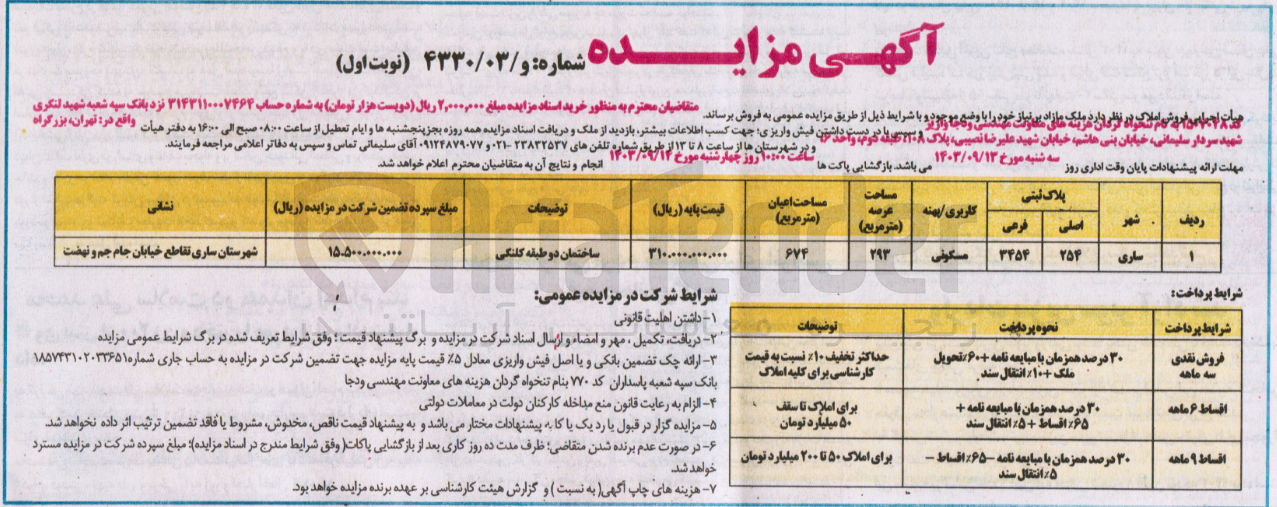 آگهی مزایده شماره: و/۴۳۳۰/۰۳ (نوبت اول)
هیأت اجرایی فروش املاک در نظر دارد ملک مازاد بر نیاز خود را با وضع موجود و با شرایط ذیل از طریق مزایده عمومی به فروش برساند.
متقاضیان محترم به منظور خرید اسناد مزایده مبلغ ۲,۰۰۰,۰۰۰ ریال (دویست هزار تومان) به شماره حساب ۳۱۴۳۱۱۰۰۰۷۴۶۴ نزد بانک سپه شعبه شهید لنگری
بنام تنخواه گردان هزینه های معاونت مهندسی ودجا واریز و سپس با در دست داشتن فیش واریزی؛ جهت کسب اطلاعات بیشتر، بازدید از ملک و دریافت اسناد مزایده همه روزه بجز پنجشنبه ها و ایام تعطیل از ساعت ۰۸:۰۰ صبح الی ۱۶:۰۰ به دفتر هیأت واقع در: تهران، بزرگراه
شهید سردار سلیمانی، خیابان بنی هاشم، خیابان شهید علیرضا نصیبی، پلاک ۱۰۸، طبقه دوم، واحد ۱۶ و در شهرستان ها از ساعت ۸ تا ۱۳ از طریق شماره تلفن های ۲۳۸۳۲۵۳۷-۰۲۱ و ۰۹۱۲۴۸۷۹۰۷۷ آقای سلیمانی تماس و سپس به دفاتر اعلامی مراجعه فرمایند.
مهلت ارائه پیشنهادات پایان وقت اداری روز سه شنبه مورخ ۱۴۰۳/۰۹/۱۳ می باشد. بازگشایی پاکت ها ساعت ۱۰:۰۰ روز چهارشنبه مورخ ۱۴۰۳/۰۹/۱۴ انجام و نتایج آن به متقاضیان محترم اعلام خواهد شد.
ردیف شهر پلاک ثبتی اصلی فرعی کاربری/پهنه مساحت عرصه (مترمربع) مساحت اعیان (مترمربع) قیمت پایه (ریال) توضیحات مبلغ سپرده تضمین شرکت در مزایده (ریال) نشانی
۱ ساری ۲۵۴ ۳۴۵۴ مسکونی ۲۹۳ ۶۷۴ ۳۱۰.۰۰۰.۰۰۰.۰۰۰ ساختمان دو طبقه کلنگی ۱۵.۵۰۰.۰۰۰.۰۰۰ شهرستان ساری تقاطع خیابان جام جم و نهضت
شرایط پرداخت:
شرایط پرداخت نحوه پرداخت توضیحات
فروش نقدی سه ماهه ۳۰ درصد همزمان با مبایعه نامه +۶۰٪ تحویل ملک +۱۰٪ انتقال سند حداکثر تخفیف ۱۰٪ نسبت به قیمت کارشناسی برای کلیه املاک
اقساط ۶ ماهه ۳۰ درصد همزمان با مبایعه نامه + ۶۵٪ اقساط +۵٪ انتقال سند برای املاک تا سقف ۵۰ میلیارد تومان
اقساط ۹ ماهه ۳۰ درصد همزمان با مبایعه نامه –۶۵٪ اقساط – ۵٪ انتقال سند برای املاک ۵۰ تا ۲۰۰ میلیارد تومان
شرایط شرکت در مزایده عمومی:
۱- داشتن اهلیت قانونی
۲- دریافت، تکمیل، مهر و امضاء و ارسال اسناد شرکت در مزایده و برگ پیشنهاد قیمت؛ وفق شرایط تعریف شده در برگ شرایط عمومی مزایده
۳- ارائه چک تضمین بانکی و یا اصل فیش واریزی معادل ۵٪ قیمت پایه مزایده جهت تضمین شرکت در مزایده به حساب جاری شماره ۱۸۵۷۴۳۱۰۲۰۳۳۶۵۱
بانک سپه شعبه پاسداران کد ۷۷۰ بنام تنخواه گردان هزینه های معاونت مهندسی ودجا
۴- الزام به رعایت قانون منع مداخله کارکنان دولت در معاملات دولتی
۵- مزایده گزار در قبول یا رد یک یا کلیه پیشنهادات مختار می باشد و به پیشنهاد قیمت ناقص، مخدوش، مشروط یا فاقد تضمین ترتیب اثر داده نخواهد شد.
۶- در صورت عدم برنده شدن متقاضی؛ ظرف مدت ده روز کاری بعد از بازگشایی پاکات (وفق شرایط مندرج در اسناد مزایده)؛ مبلغ سپرده شرکت در مزایده مسترد
خواهد شد.
۷- هزینه های چاپ آگهی (به نسبت) و گزارش هیئت کارشناسی بر عهده برنده مزایده خواهد بود.
AriaTender